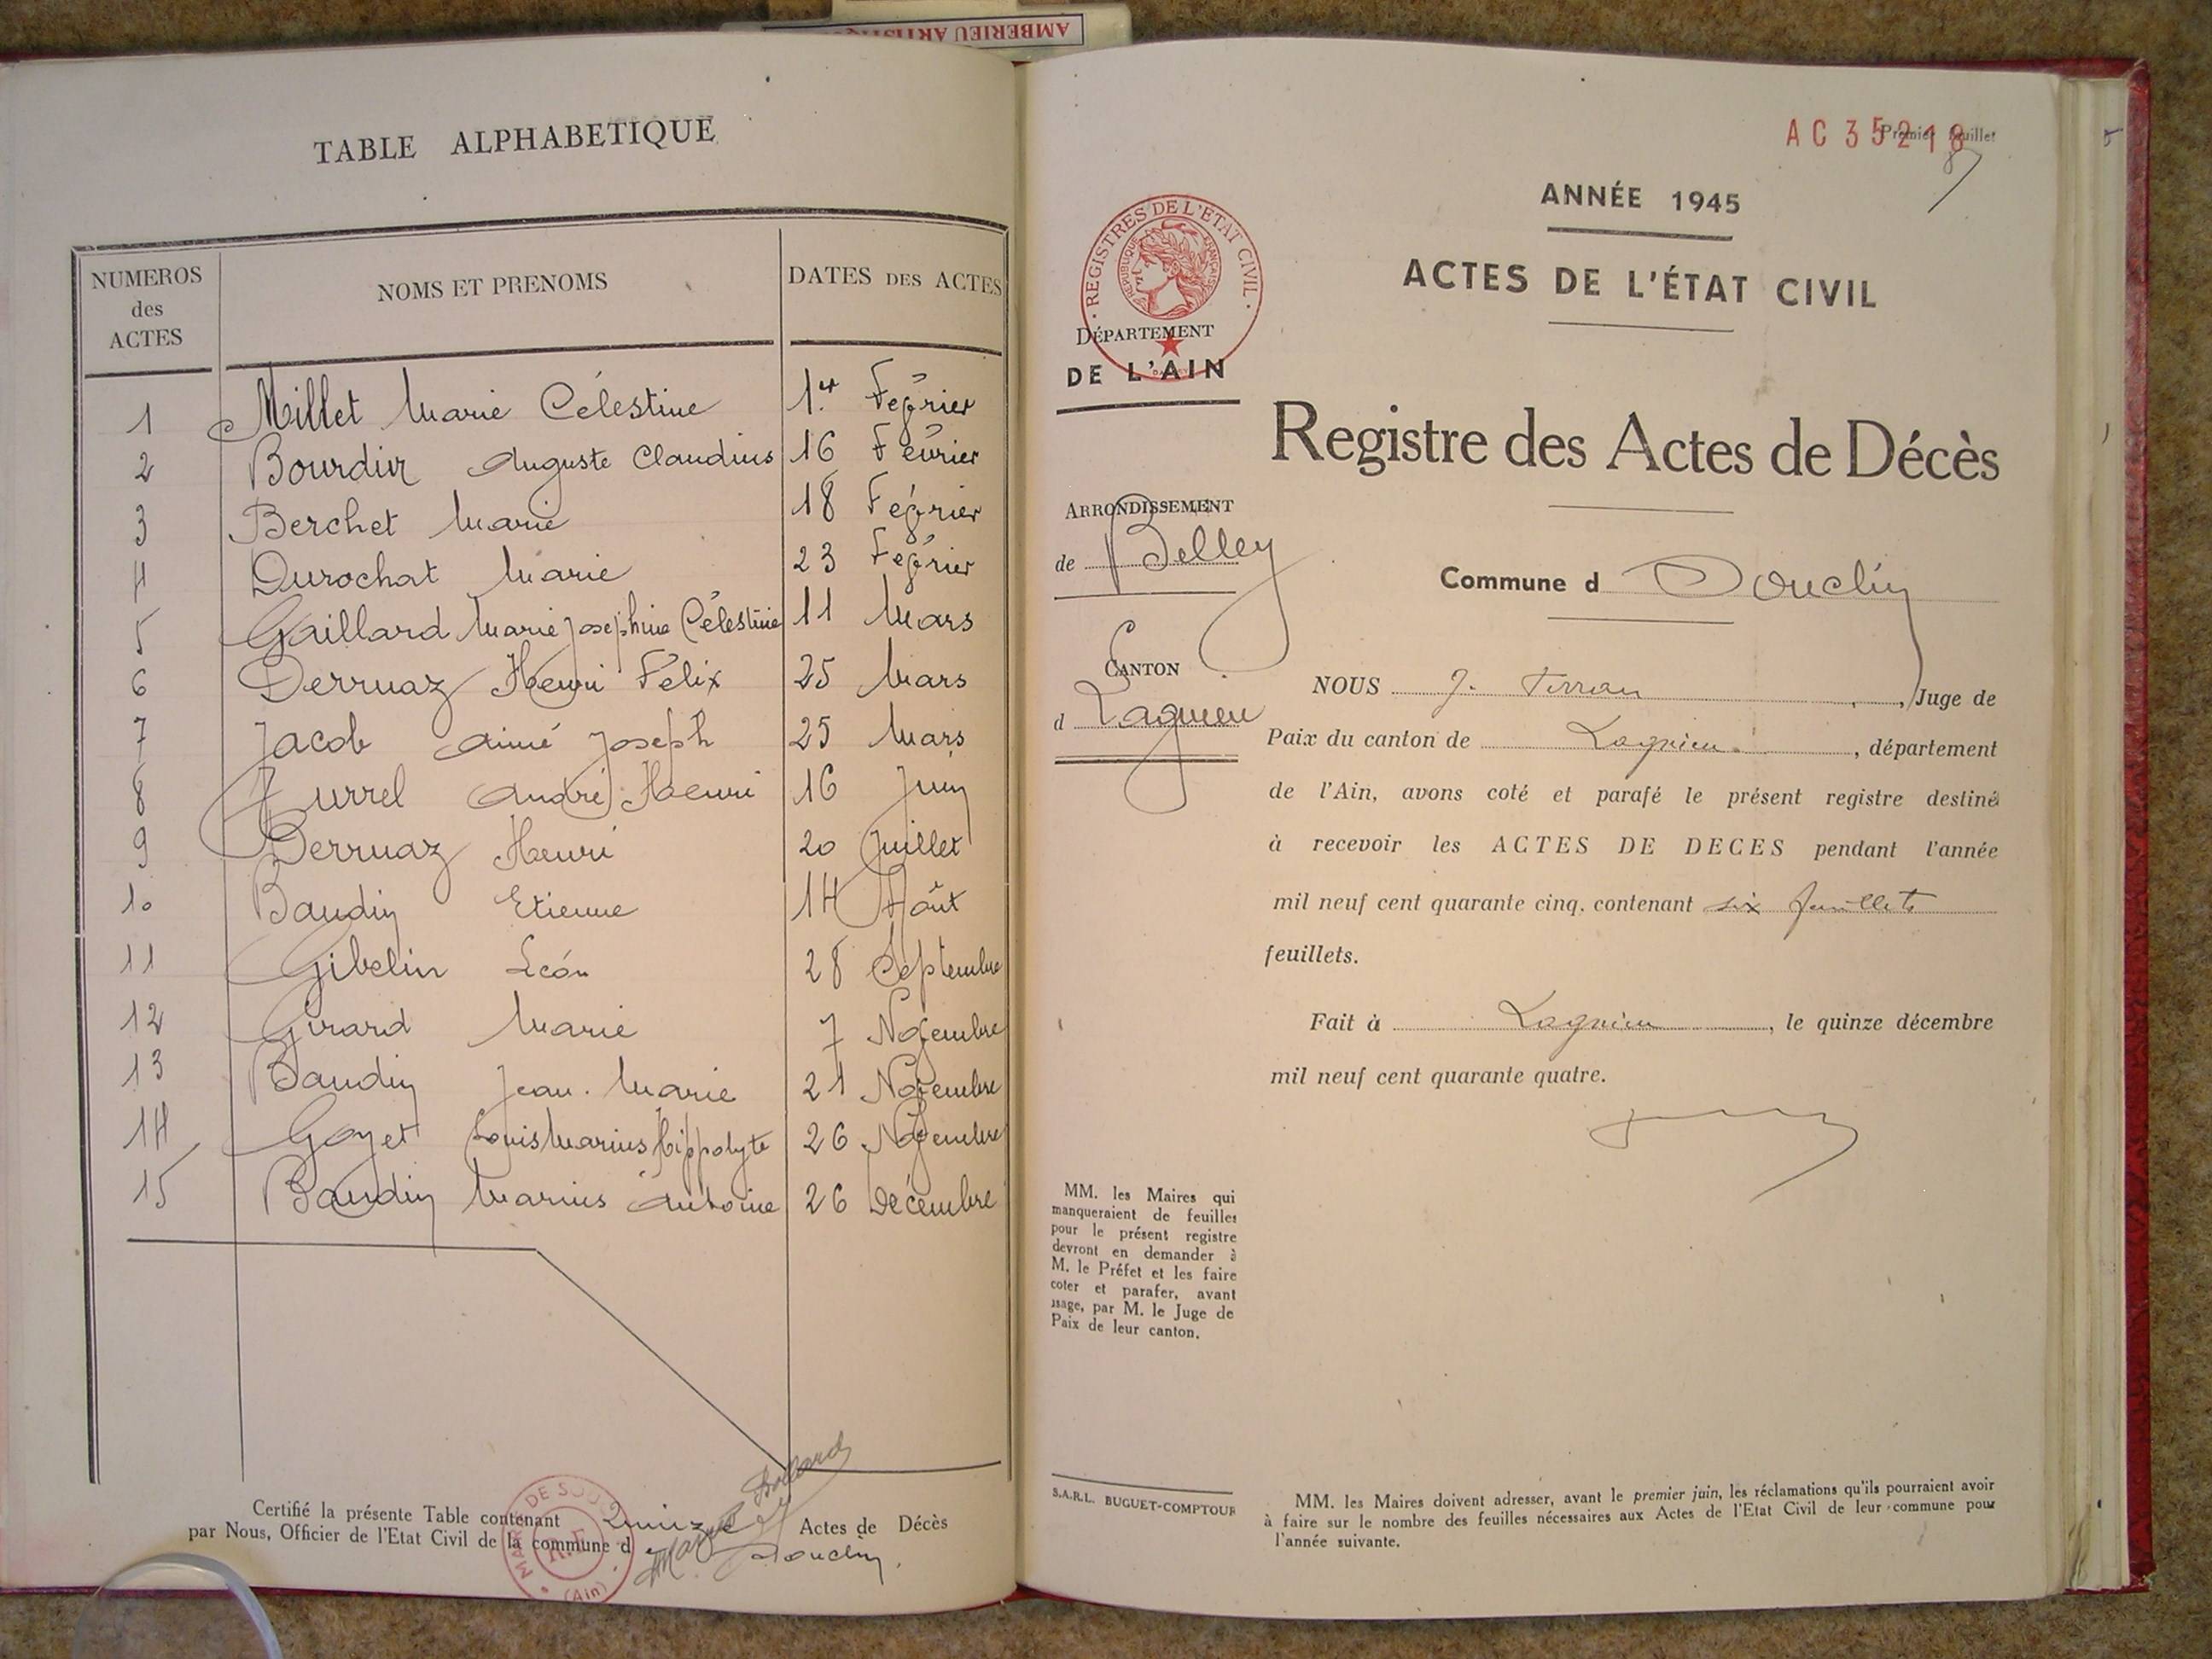 AMBERIEU ARTISTIQUE
TABLE ALPHABETIQUE
NUMEROS des ACTES
NOMS ET PRENOMS
DATES DES ACTES
1 Millet Marie Célestine 1er Février
2 Bourdin Auguste Claudius 16 Février
3 Berchet Marie 18 Février
4 Durochat Marie 23 Février
5 Gaillard Marie Joséphine Célestine 11 Mars
6 Derruaz Henri Félix 25 Mars
7 Jacob Aimé Joseph 25 Mars
8 Jurrel André Henri 16 Juin
9 Derruaz Henri 20 Juillet
10 Baudin Etienne 14 Août
11 Gibelin Léon 28 Septembre
12 Girard Marie 7 Novembre
13 Baudin Jean-Marie 21 Novembre
14 Goyet Louis Marius Hippolyte 26 Novembre
15 Baudin Marius Antoine 26 Décembre
Certifié la présente Table contenant Quinze Actes de Décès
par Nous, Officier de l'Etat Civil de la commune de Souclin.
R.F.
(Ain)
AC 35218
Premier feuillet
ANNÉE 1945
ACTES DE L'ÉTAT CIVIL
REGISTRES DE L'ETAT CIVIL
REPUBLIQUE FRANÇAISE
DÉPARTEMENT
DE L'AIN
Registre des Actes de Décès
ARRONDISSEMENT
de Belley
Commune d Souclin
CANTON
d Lagnieu
NOUS J. , Juge de
Paix du canton de Lagnieu, département
de l'Ain, avons coté et parafé le présent registre destiné
à recevoir les ACTES DE DECES pendant l'année
mil neuf cent quarante cinq. contenant six feuillets
feuillets.
Fait à Lagnieu, le quinze décembre
mil neuf cent quarante quatre.
MM. les Maires qui
manqueraient de feuilles
pour le présent registre
devront en demander à
M. le Préfet et les faire
coter et parafer, avant
usage, par M. le Juge de
Paix de leur canton.
S.A.R.L. BUGUET-COMPTOUR
MM. les Maires doivent adresser, avant le premier juin, les réclamations qu'ils pourraient avoir
à faire sur le nombre des feuilles nécessaires aux Actes de l'Etat Civil de leur commune pour
l'année suivante.